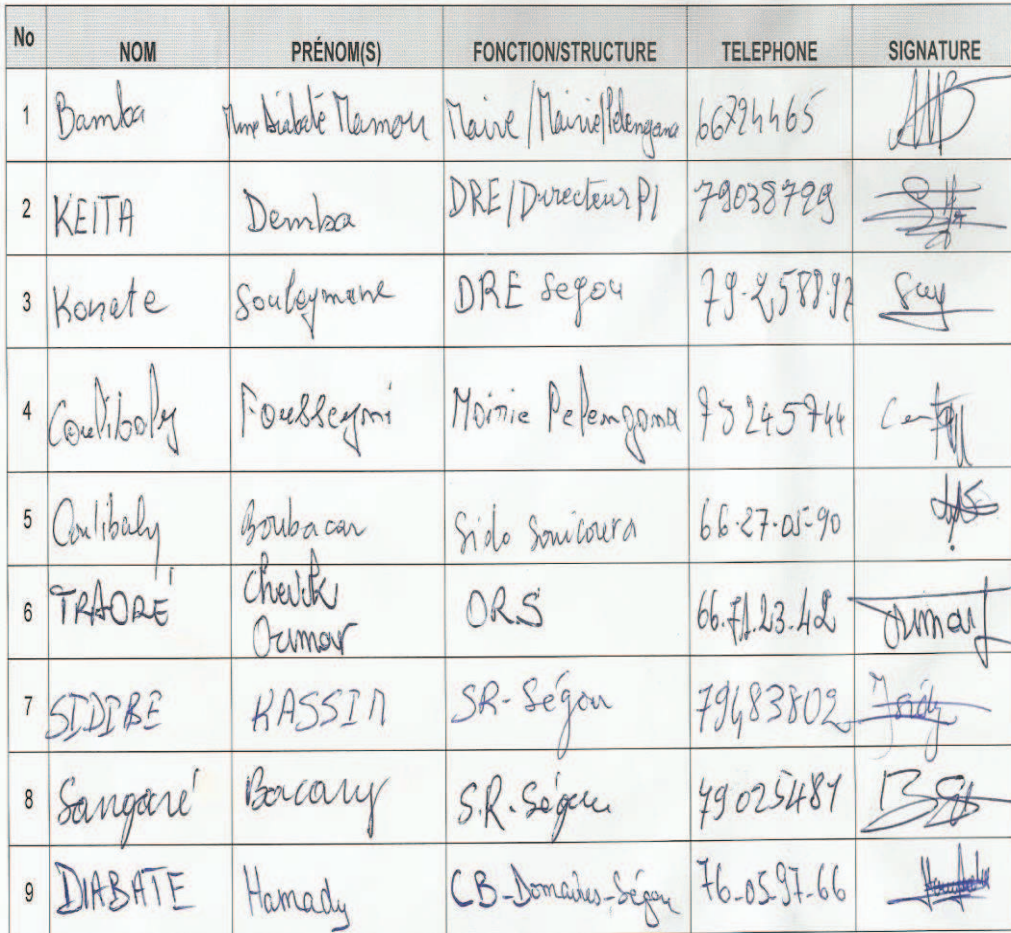 No NOM PRÉNOM(S) FONCTION/STRUCTURE TELEPHONE SIGNATURE
1 Bamba Mme Diabaté Mamou Maire/Mairie Pelengana 66724465
2 KEITA Demba DRE/Directeur PI 79038729
3 Konate Souleymane DRE Segou 79-258892
4 Coulibaly Fousseyni Mairie Pelengana 73245744
5 Coulibaly Boubacar Sido Sonicoura 66-27-05-90
6 TRAORÉ Cheick
Oumar ORS 66.71.23.42 Oumar
7 SIDIBE KASSIM SR-Ségou 79483802
8 Sangaré Bacary S.R-Ségou 79025481
9 DIABATE Hamady CB-Domaines-Ségou 76-05-97-66